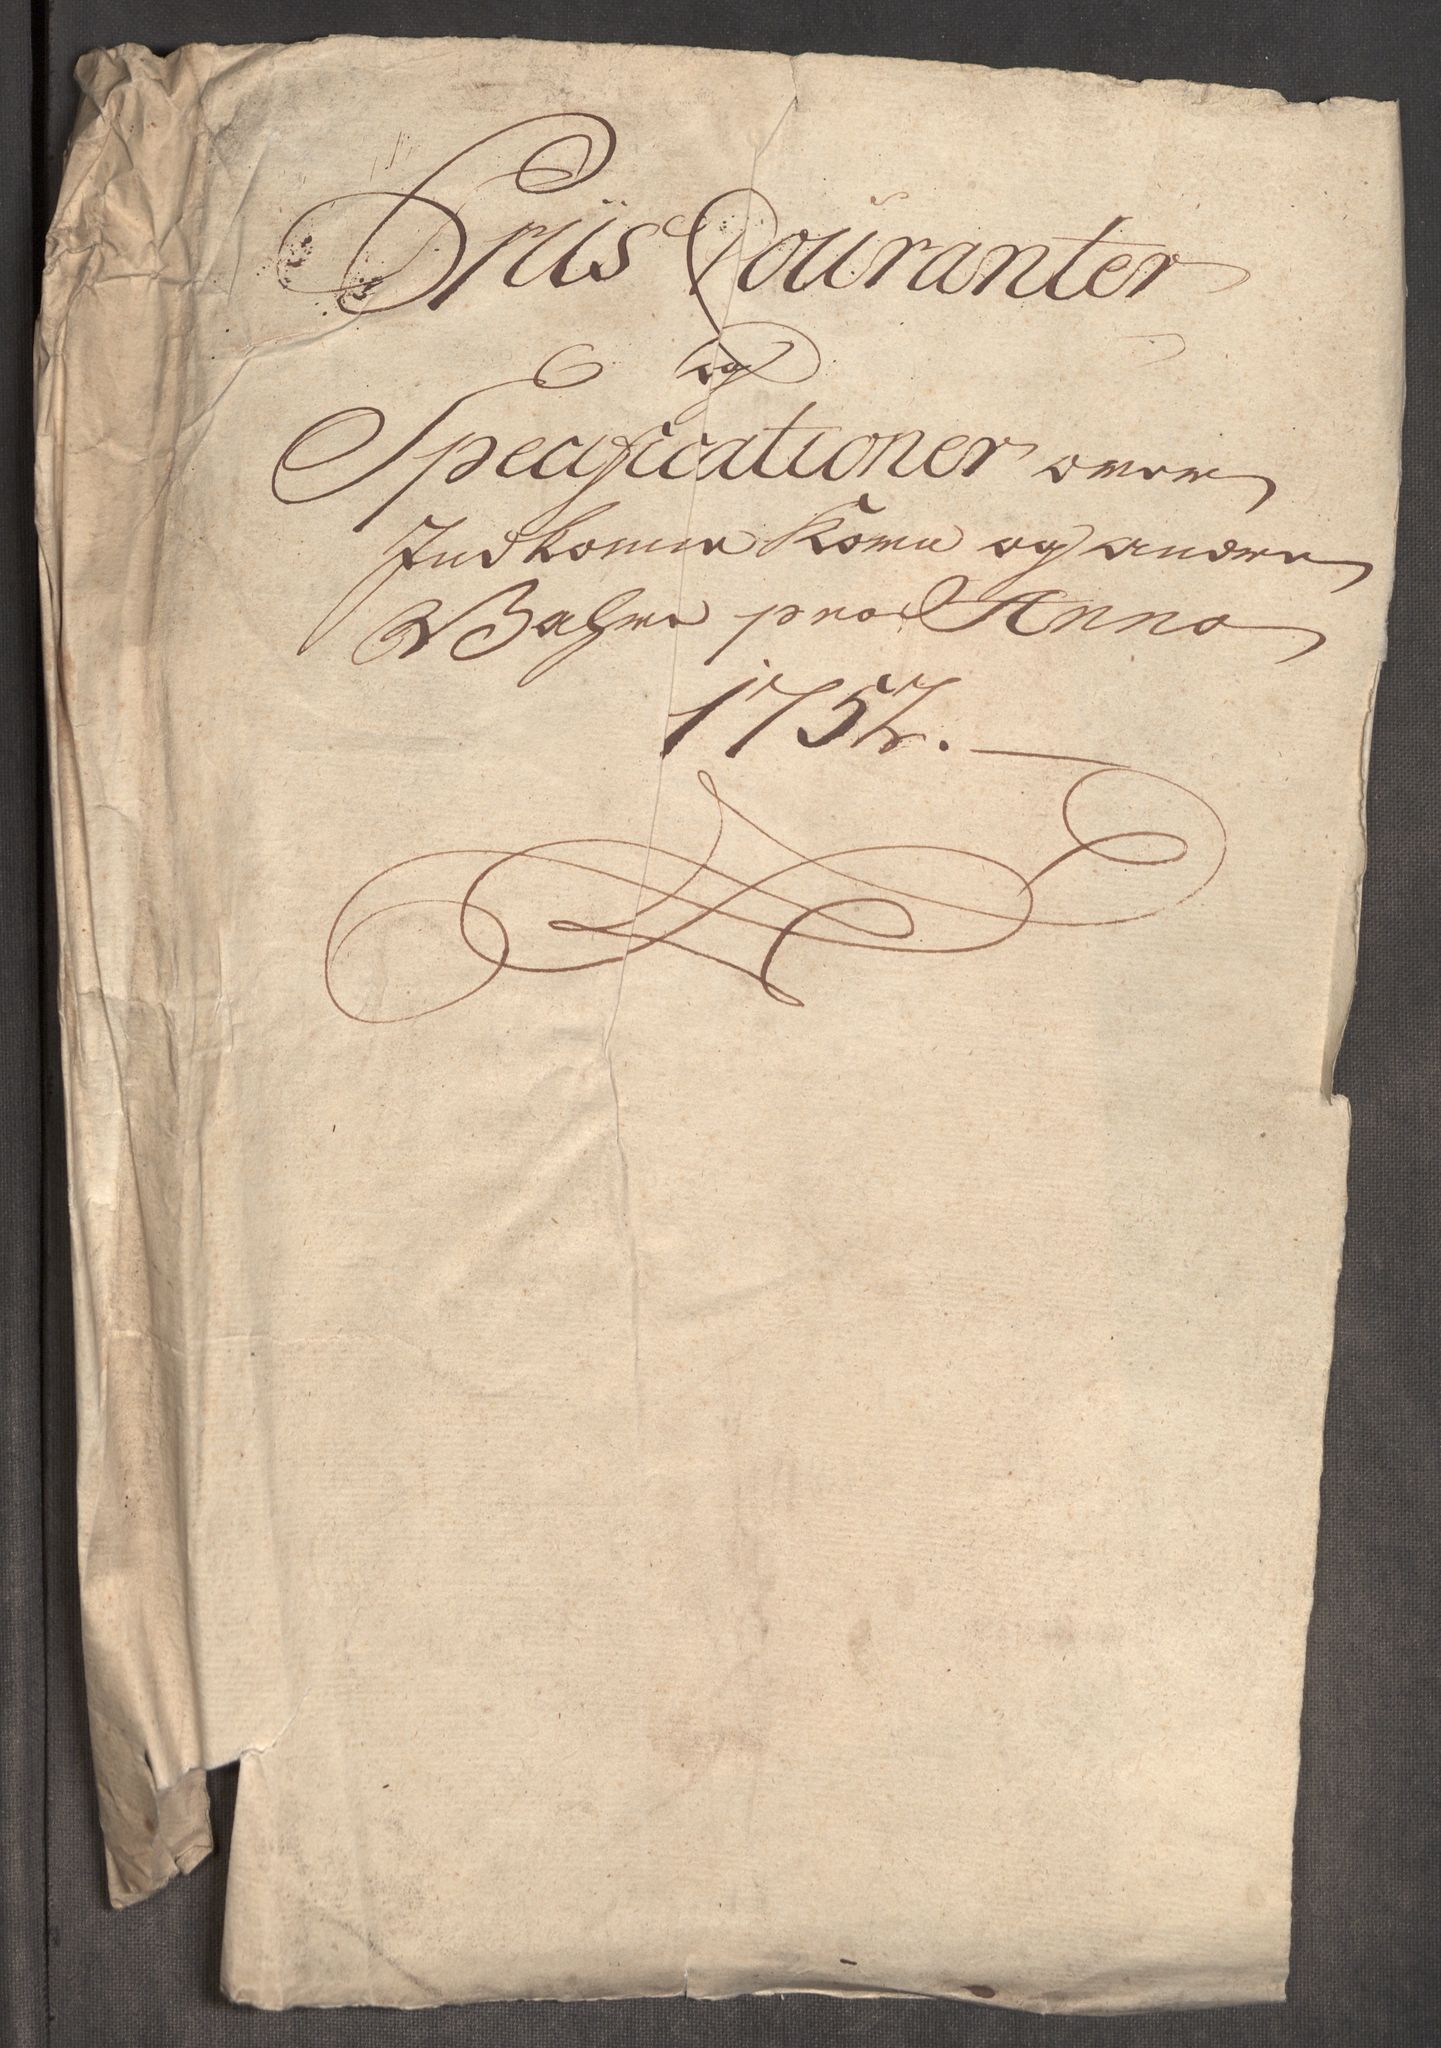 Priis Couranter
og
Specificationer over
Indkomne Korn og andre
Vahre pro Anno
1752.